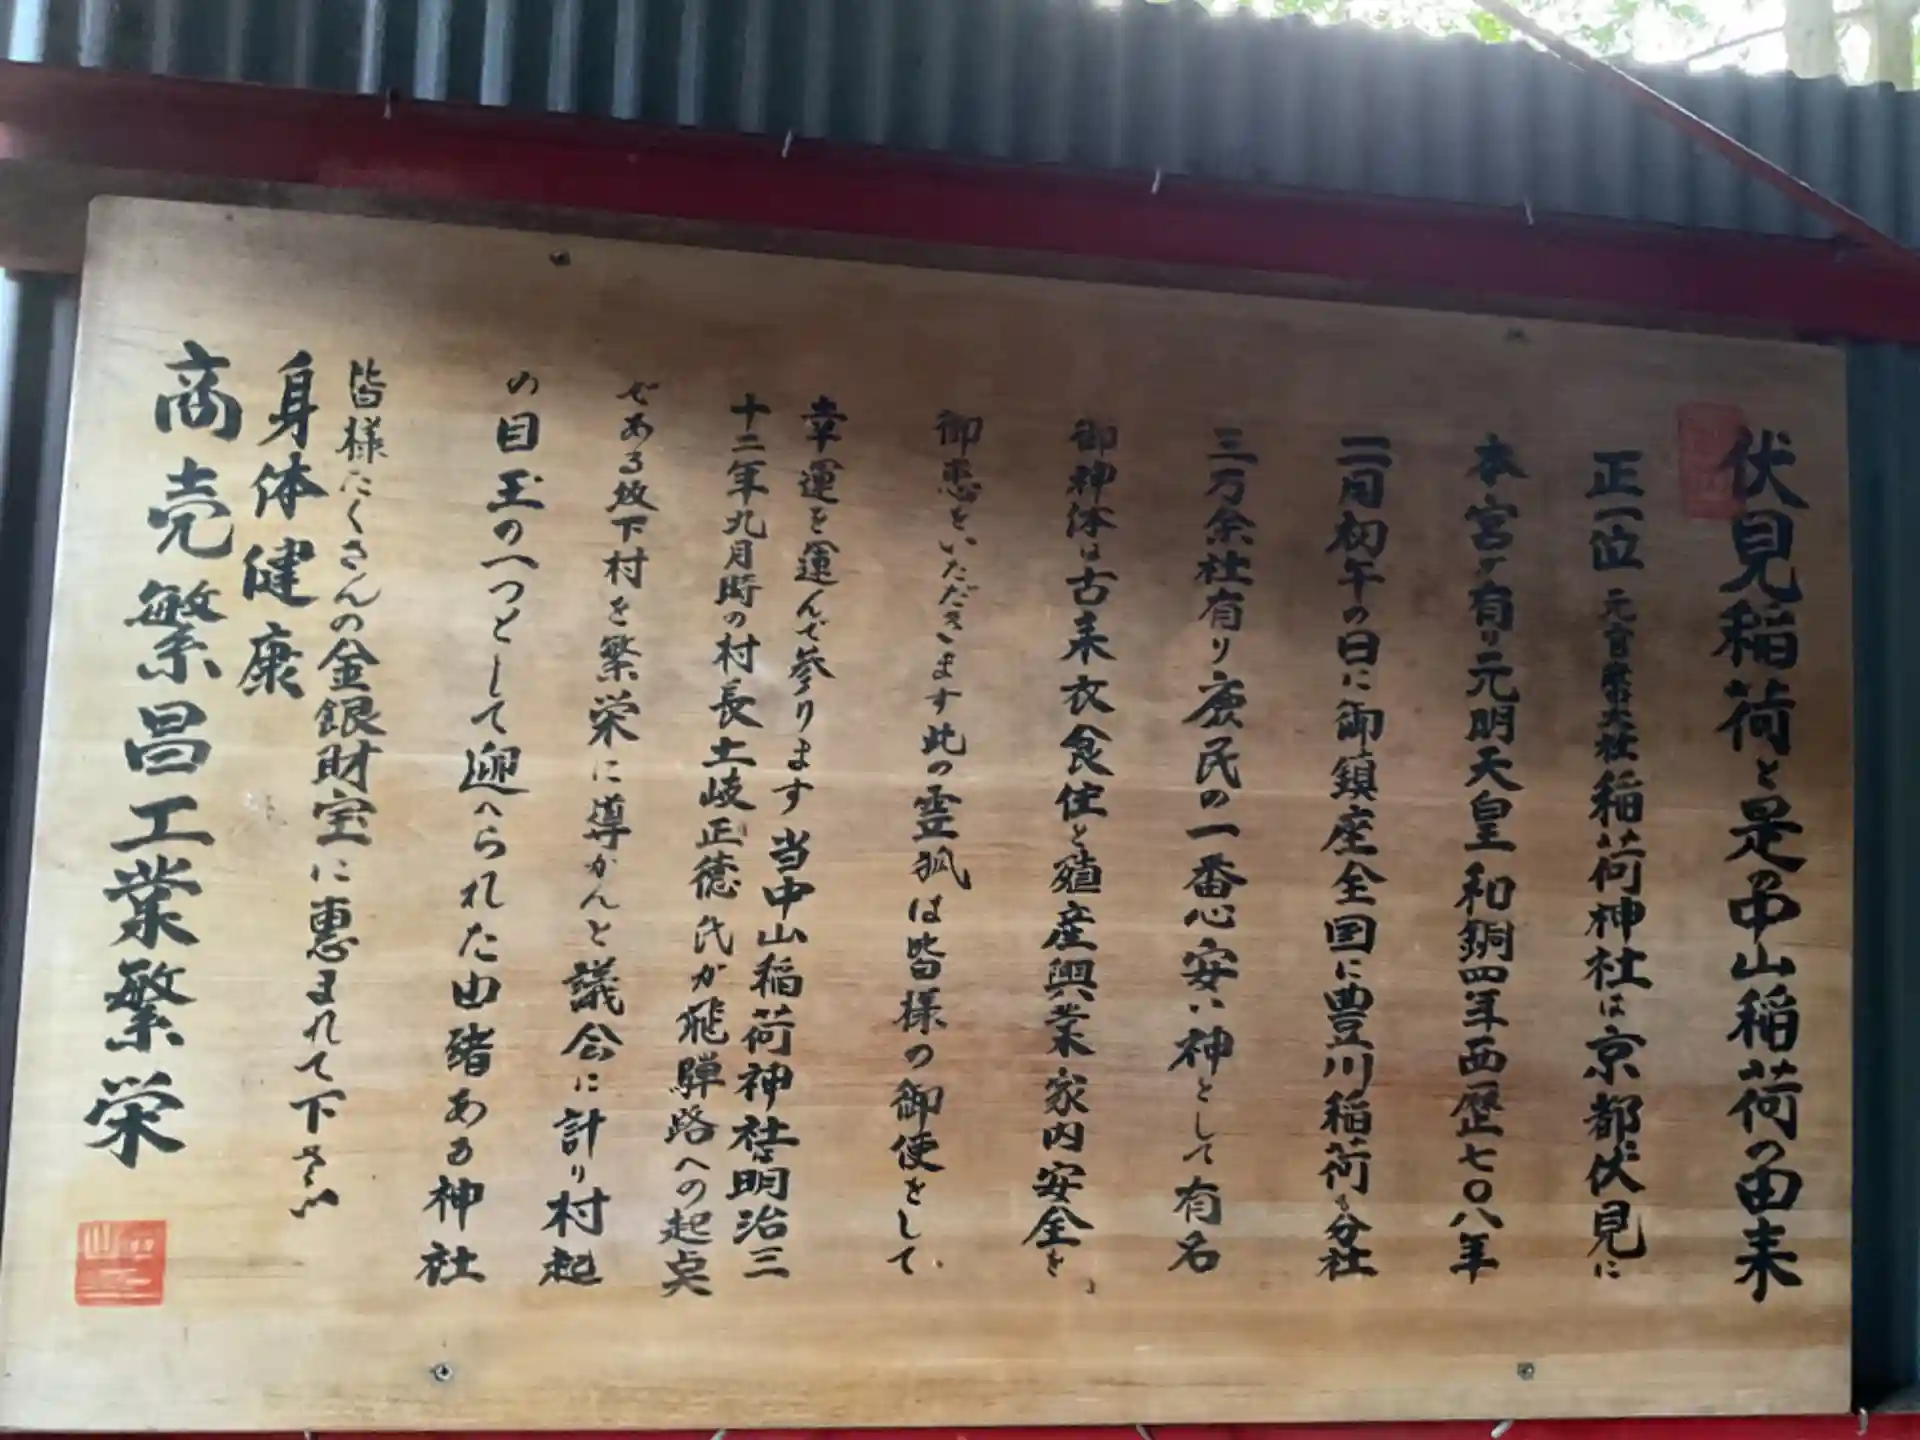 伏見稲荷と是の中山稲荷の由来
正一位 元官幣大社稲荷神社は京都伏見に
本宮が有り元明天皇和銅四年西歴七〇八年
二月初午の日に御鎮座全国に豊川稲荷も分社
三万余社有り庶民の一番心安い神として有名
御神体は古来衣食住と殖産興業家内安全を
御恵をいただきます此の霊狐は皆様の御使をして、
幸運を運んで参ります当中山稲荷神社は明治三
十二年九月時の村長土岐正徳氏が飛騨路への起点
である坂下村を繁栄に導かんと議会に計り村起
の目玉の一つとして迎へられた由緒ある神社
皆様たくさんの金銀財宝に恵まれて下さい
身体健康
商売繁昌工業繁栄